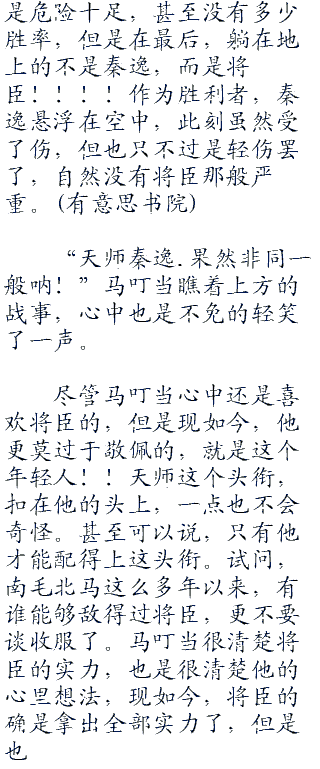 是危险十足，甚至没有多少
胜率，但是在最后，躺在地
上的不是秦逸，而是将
臣！！！！作为胜利者，秦
逸悬浮在空中，此刻虽然受
了伤，但也只不过是轻伤罢
了，自然没有将臣那般严
重。(有意思书院)
“天师秦逸.果然非同一
般呐！”马叮当瞧着上方的
战事，心中也是不免的轻笑
了一声。
尽管马叮当心中还是喜
欢将臣的，但是现如今，他
更莫过于敬佩的，就是这个
年轻人！！天师这个头衔，
扣在他的头上，一点也不会
奇怪。甚至可以说，只有他
才能配得上这头衔。试问，
南毛北马这么多年以来，有
谁能够敌得过将臣，更不要
谈收服了。马叮当很清楚将
臣的实力，也是很清楚他的
心里想法，现如今，将臣的
确是拿出全部实力了，但是
也